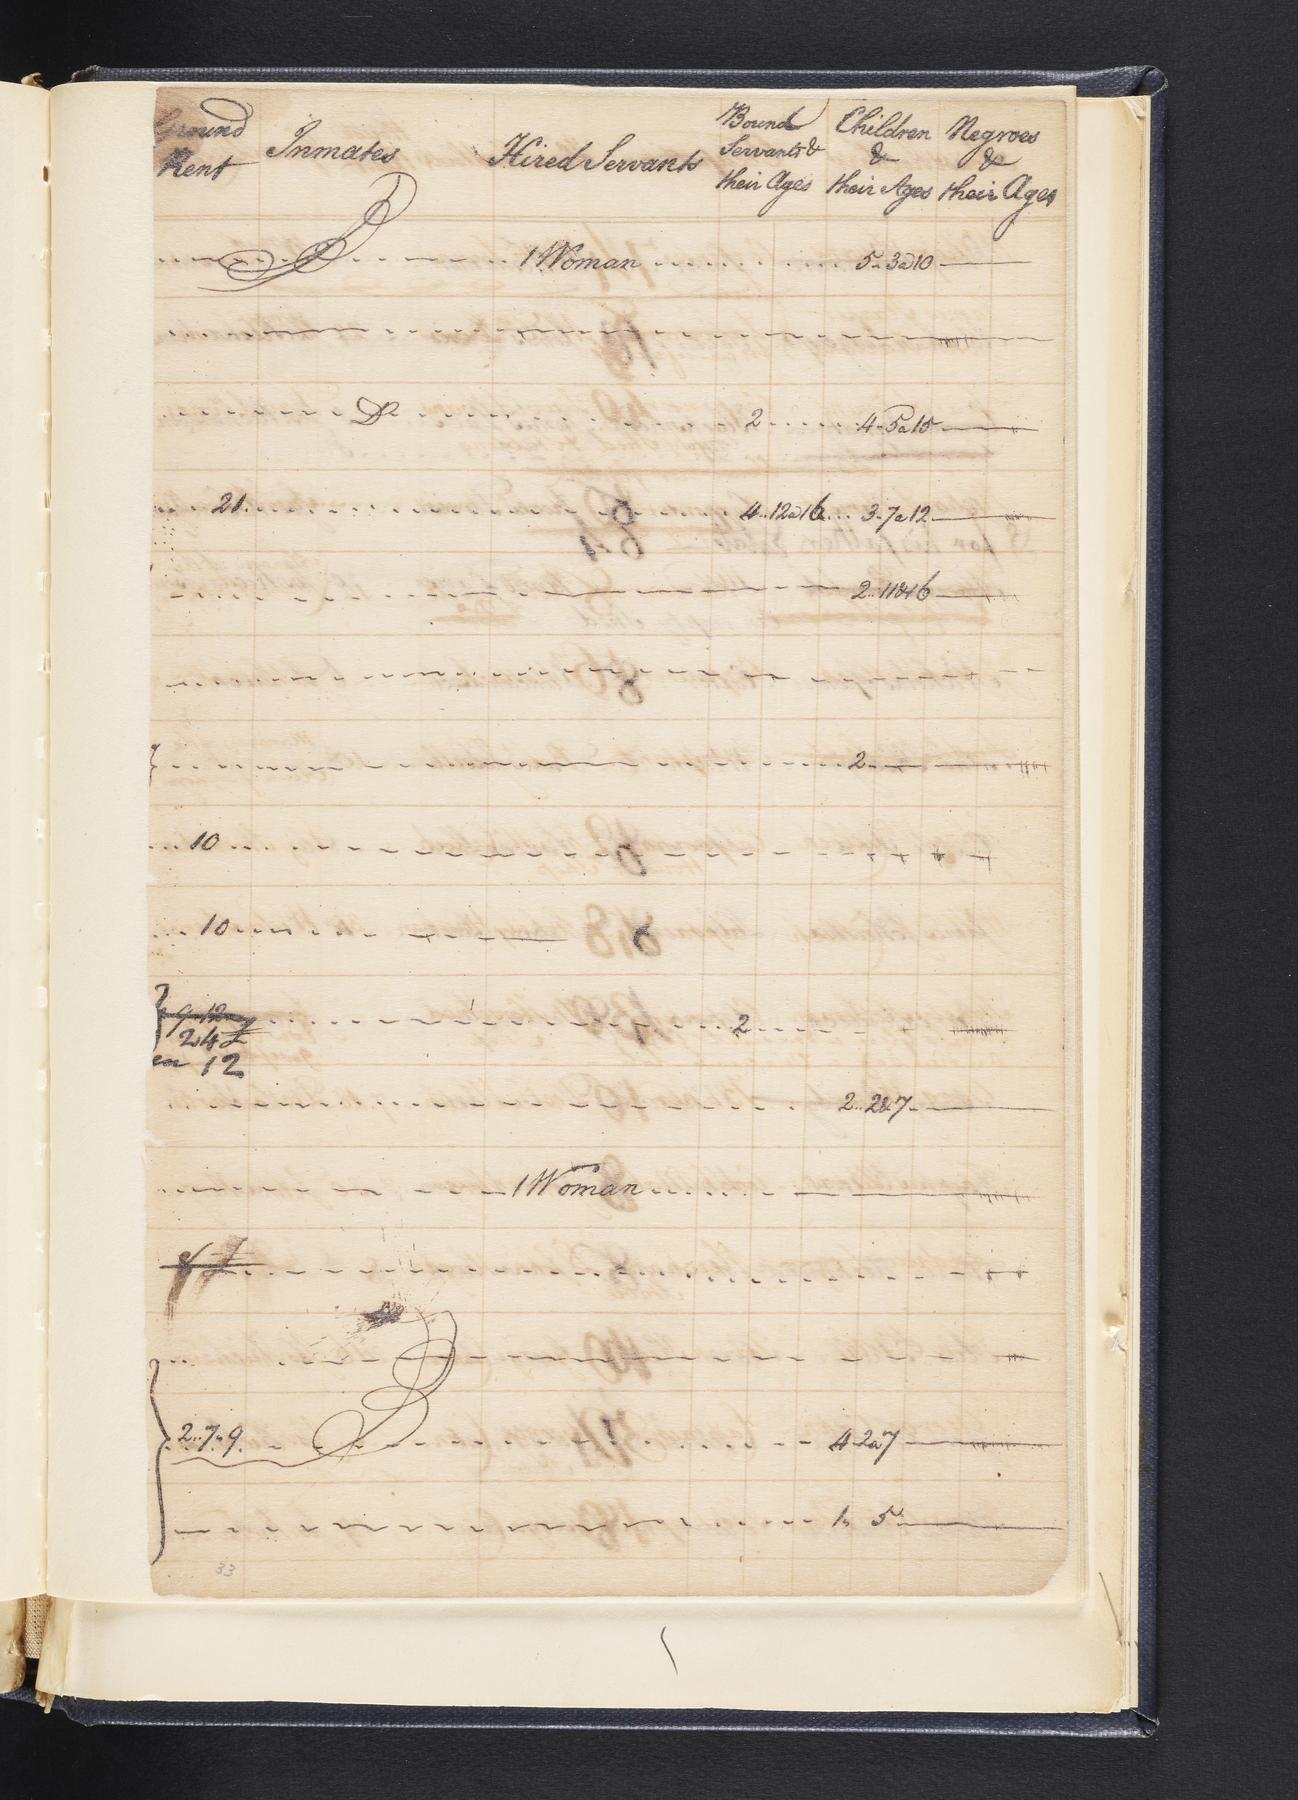 Ground Rent Inmates Hired Servants Bound Servants & their Ages Children & their Ages Negroes & their Ages
1 Woman 5 .. 3 a 10
Do 2 4 - 5 a 15
21 4 .. 12 a 16 3 - 7 a 12
2 .. 11 & 16
2
10
10
9 .. 12
24 £
12
2
2 .. 2 & 7
1 Woman
2 .. 7 .. 9 4 2 a 7
1 .. 5
33